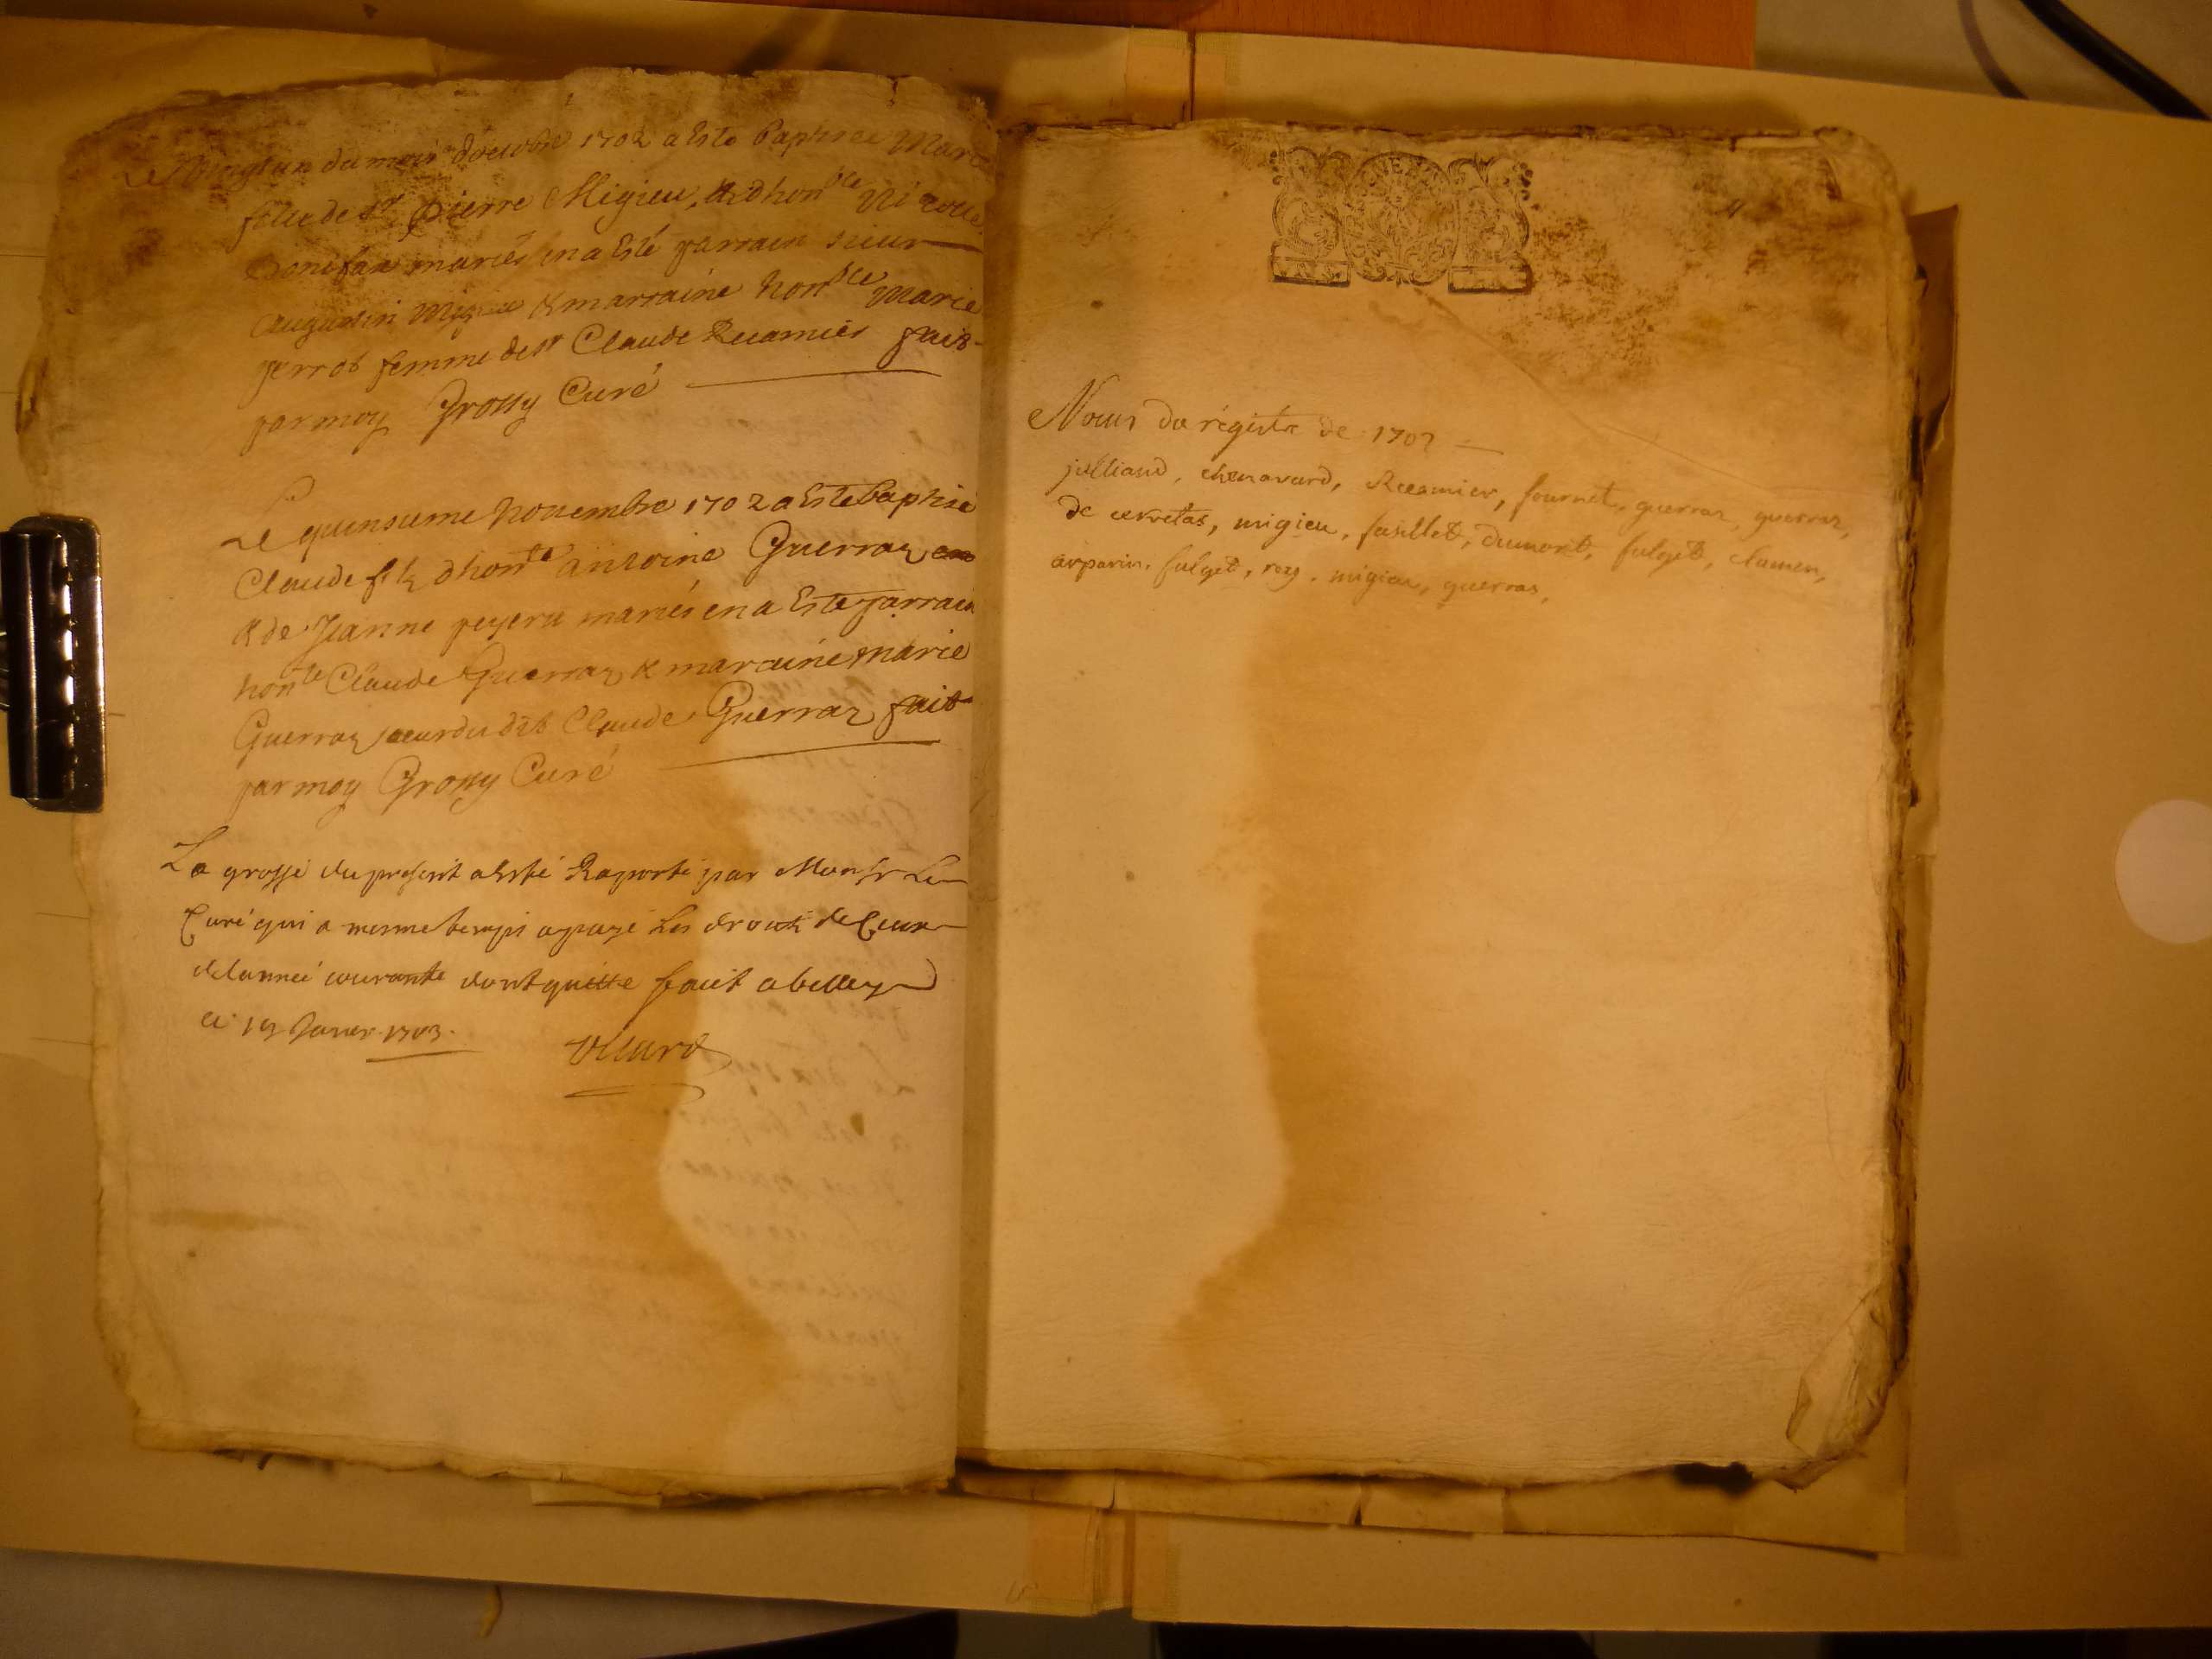 Le vingt un du mois d'octobre 1702 a Esté baptisée Marie
fille de Sr pierre Migieu, & d'honble Nicolle
Bonifax mariés en a Esté parrain sieur
Augustin Migieu & marraine honble Marie
perrot femme de Sr Claude Recamier fait
par moy Grossy Curé
Le quinsieme Novembre 1702 a Esté baptisé
Claude fils d'honble antoine Guerraz
& de Jeanne mariés en a Esté parrain
honble Claude Guerraz & maraine marie
Guerraz soeur du dit Claude Guerraz fait
par moy Grossy Curé
La grosse du present a Esté Raporté par Monsr Le
Curé qui a mesme temps a payé Les droits de
de lannéé courante dont quitte fait a belley
ce 19 Janvier 1703.
Villard
Noms du régistre de 1702
julliand, chenavard, Récamier, fournet, guerraz, guerraz,
de cerretas, migieu, fasillet, Dumont, fulget, clamen,
arparin, fulget, rey, migieu, guerras,